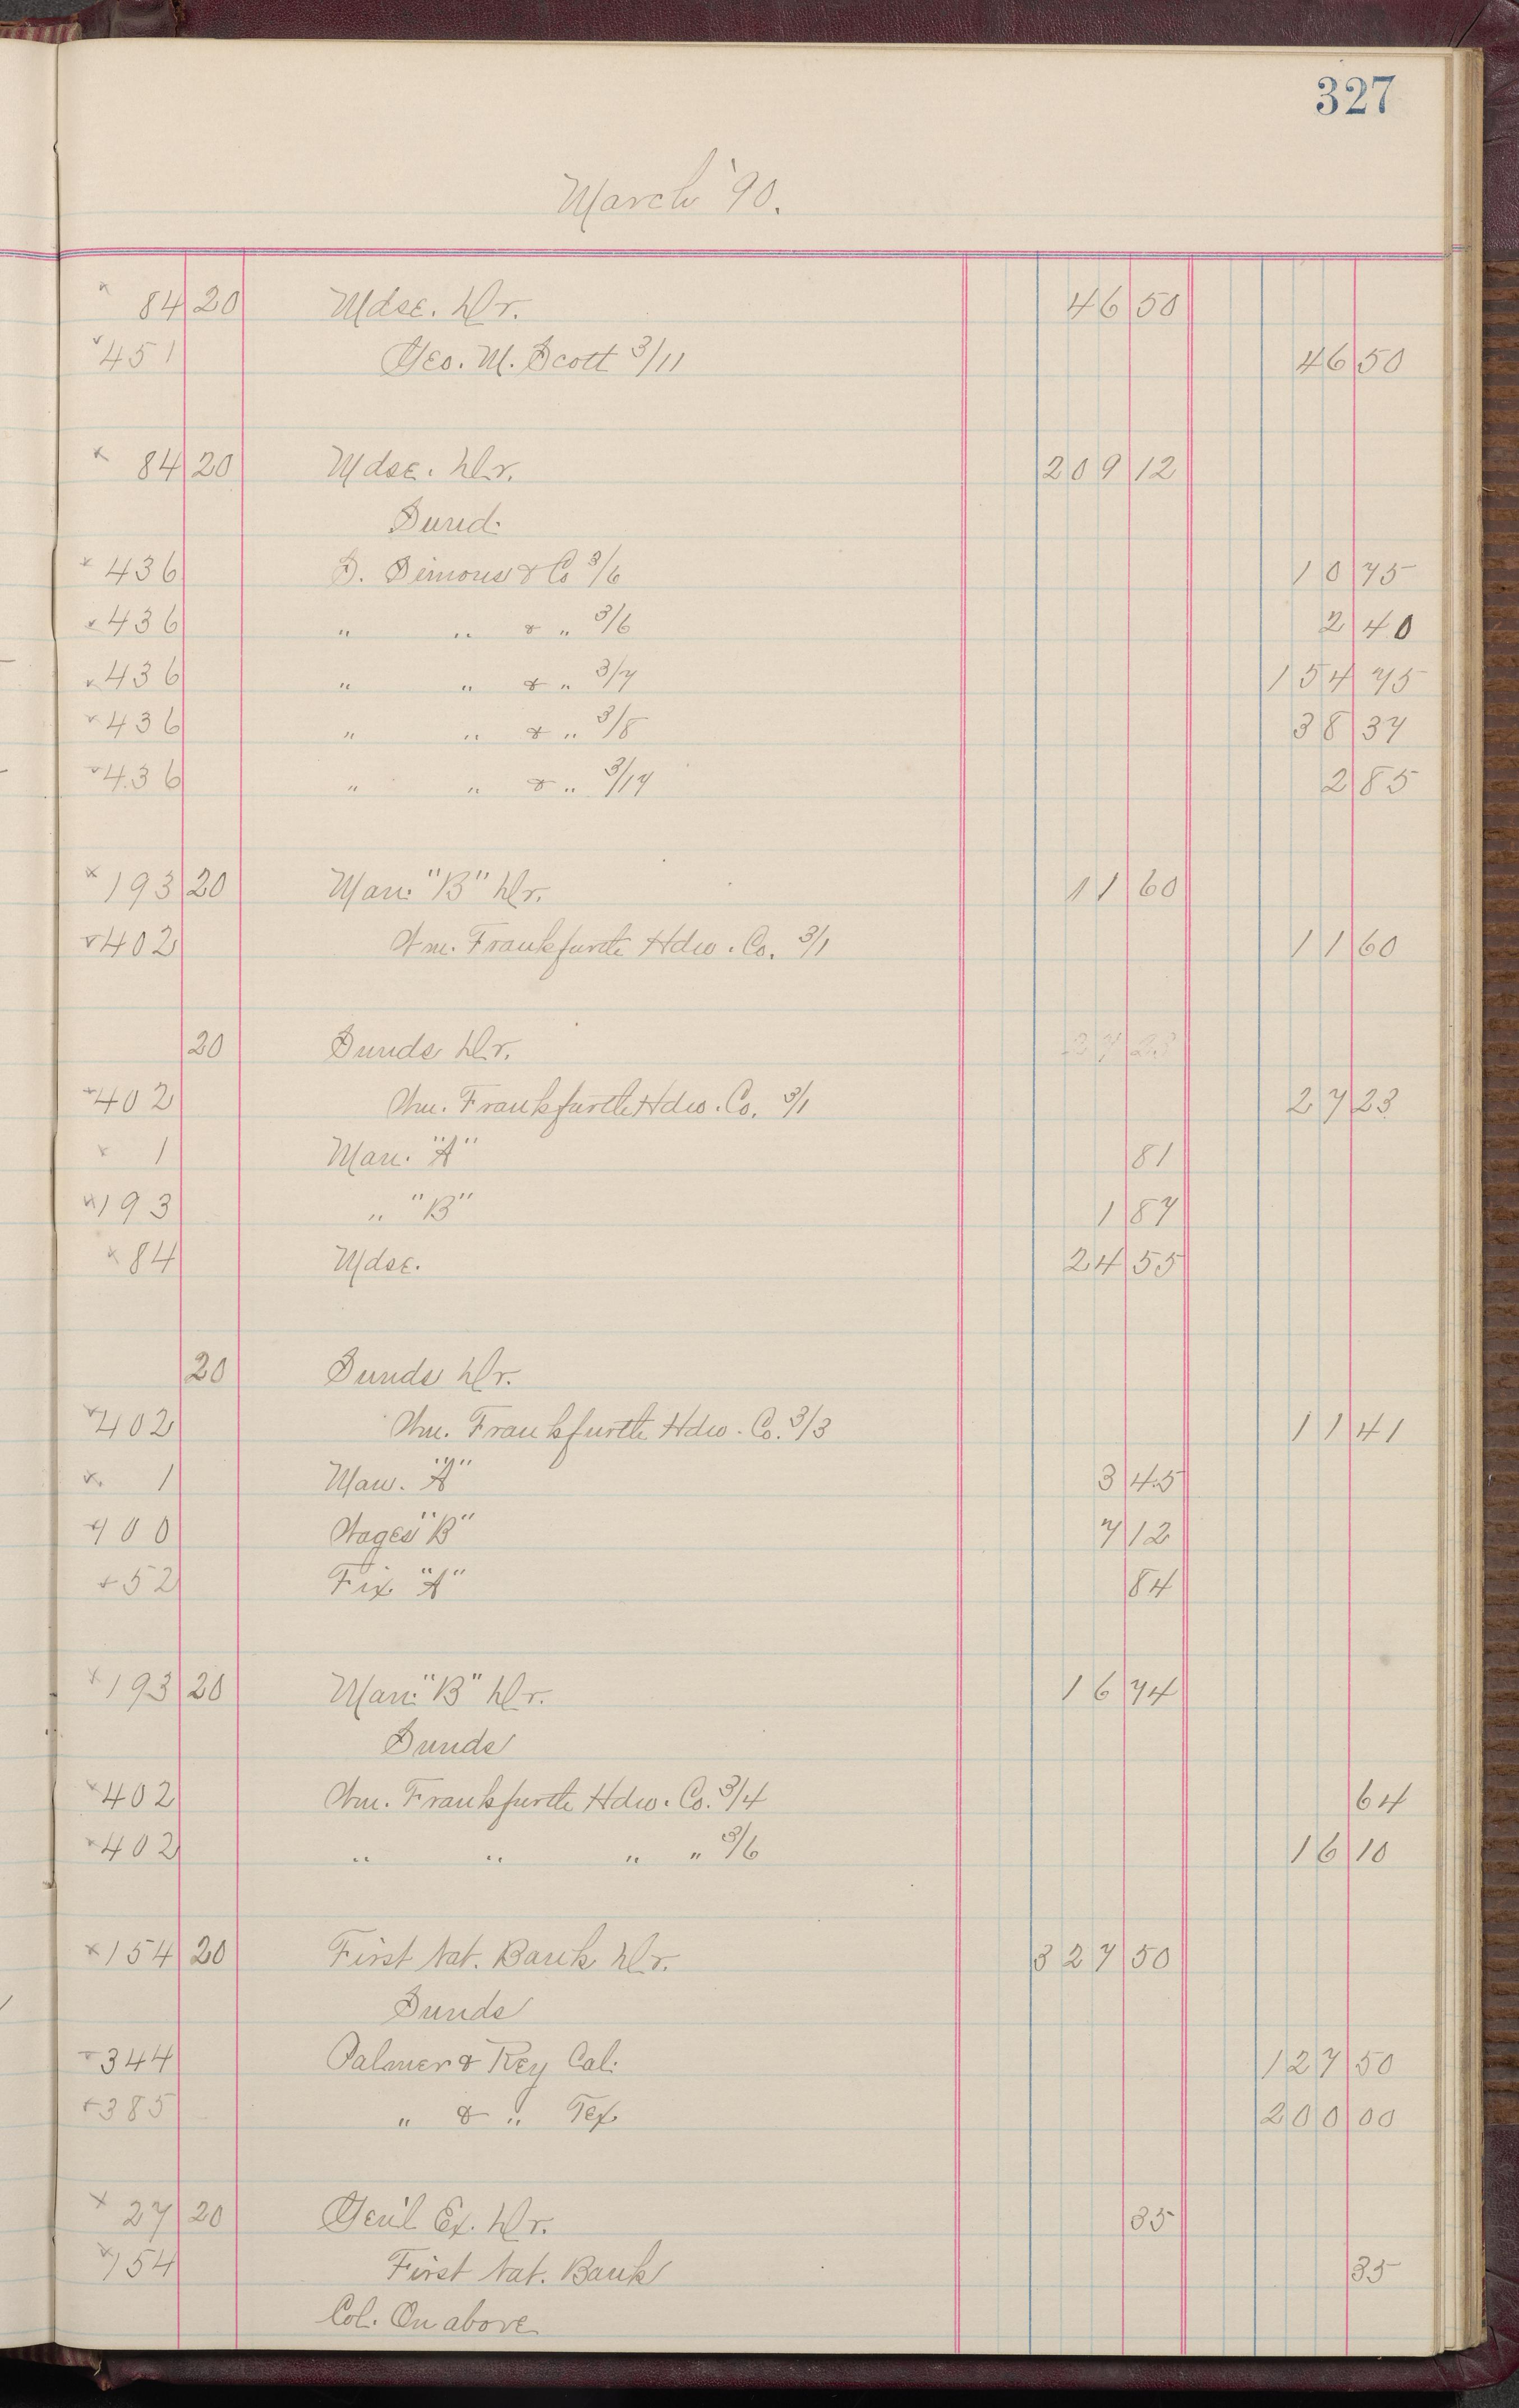 327
March '90.
84 20 Mdse. Dr. 46 50
451 Geo. M. Scott 3/11 46 50
84 20 Mdse. Dr. 209 12
Sund.
436 S. Simons & Co 3/6 10 75
436 " " & " 3/6 2 40
436 " " & " 3/7 154 75
436 " " & " 3/8 38 37
436 " " & " 3/17 2 85
193 20 Man. "B" Dr. 11 60
402 Wm. Frankfurth Hdw. Co. 3/1 11 60
20 Sunds Dr. 27 23
402 Wm. Frankfurth Hdw. Co. 3/1 27 23
1 Man. "A" 81
193 " "B" 1 87
84 Mdse. 24 55
20 Sunds Dr.
402 Wm. Frankfurth Hdw. Co. 3/3 11 41
1 Man. "A" 3 45
400 Wages "B" 7 12
52 Fix "A" 84
193 20 Man. "B" Dr. 16 74
Sunds
402 Wm. Frankfurth Hdw. Co. 3/4 64
402 " " " " 3/6 16 10
154 20 First Nat. Bank Dr. 327 50
Sunds
344 Palmer & Rey Cal. 127 50
385 " & " Tex. 200 00
27 20 Gen'l Ex. Dr. 35
154 First Nat. Bank 35
Col. On above